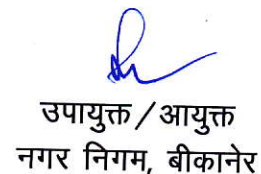 उपायुक्त / आयुक्त
नगर निगम, बीकानेर